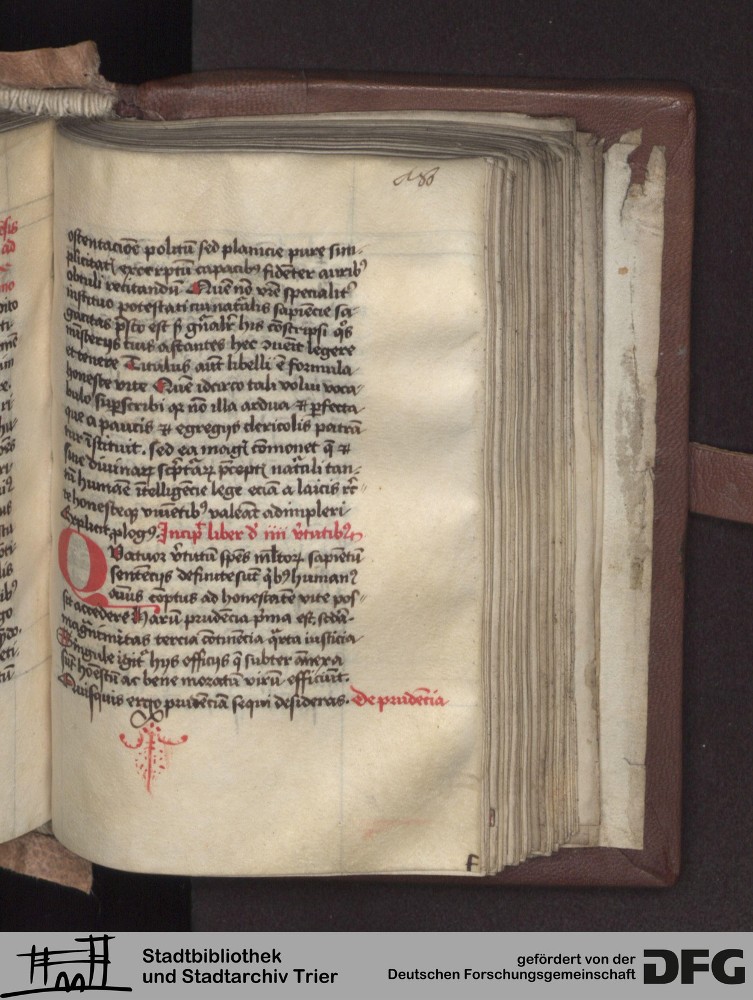 186
ostentacōe politū sed planicie pure sim-
plicitatꝭ excerptū capacibꝰ fidēter auribꝰ
obtuli recitandū Quē nō vrē specialitˀ
instituo potestati cui naťalis sapiēcie sa-
gacitas p̄sto est ſꝫ gn̄alr̄ his cōscripsi q̄s
mīsterijs tuis astantes hec ɔuenit legere
et tenere Titulus aūt libelli ē formula
honeste vite Quē idcirco tali volui voca-
bulo suꝑscribi qꝛ nō illa ardua ⁊ ꝑfecta
que a paucis ⁊ egregijs deicolis patrā
tur īstituit. sed ea magꝭ cōmonet q̄ ⁊
sine diuinaꝝ scpt̄aꝝ p̄ceptꝭ naťali tan-
tū humāe ītelligēcie lege eciā a laicis rc̄-
te honesteqꝫ viuētibꝰ valeāt adimpleri
Explicit plogꝰ Incip̄ liber d̄ iiii v̄tutibꝰ
Quatuor v̄tutū spēs mĺtoꝝ sapiētū
sentencijs definite sūt q̄bꝰ humanꝰ
aīus cōptus ad honestatē vite pos-
sit accedere Harū prudēcia p̄ma est. scd̄a-
magnīmitas tercia cōtinēcia q̄rta iusticia
Singule igit̄ hijs officijs q̄ subter ānexa
sūt hōestū ac bene moratū virū efficiūt.
Quisquis ergo prudēciā sequi desideras. De prudēcia
f
Stadtbibliothek
und Stadtarchiv Trier
gefördert von der
Deutschen Forschungsgemeinschaft
DFG